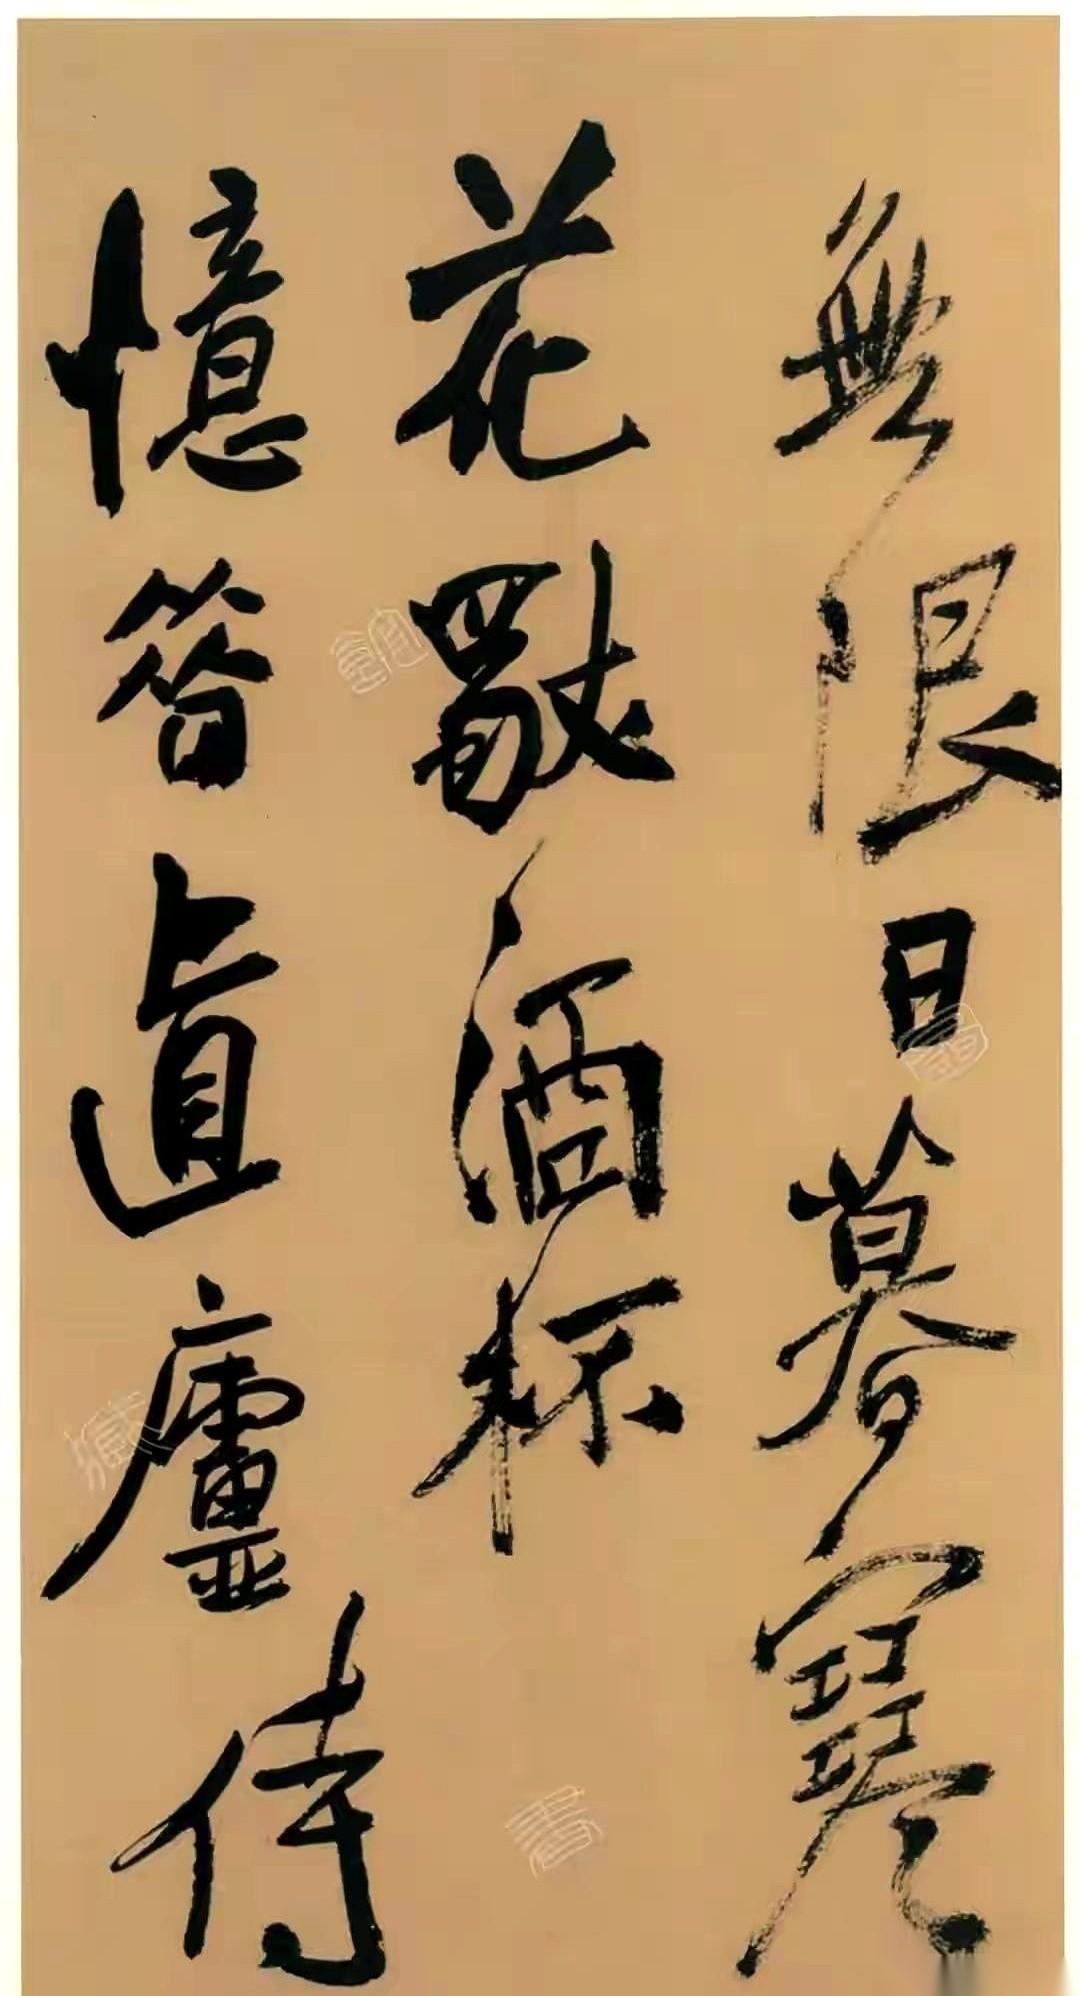 無限日暮寒
花酒杯
憶昔直廬侍